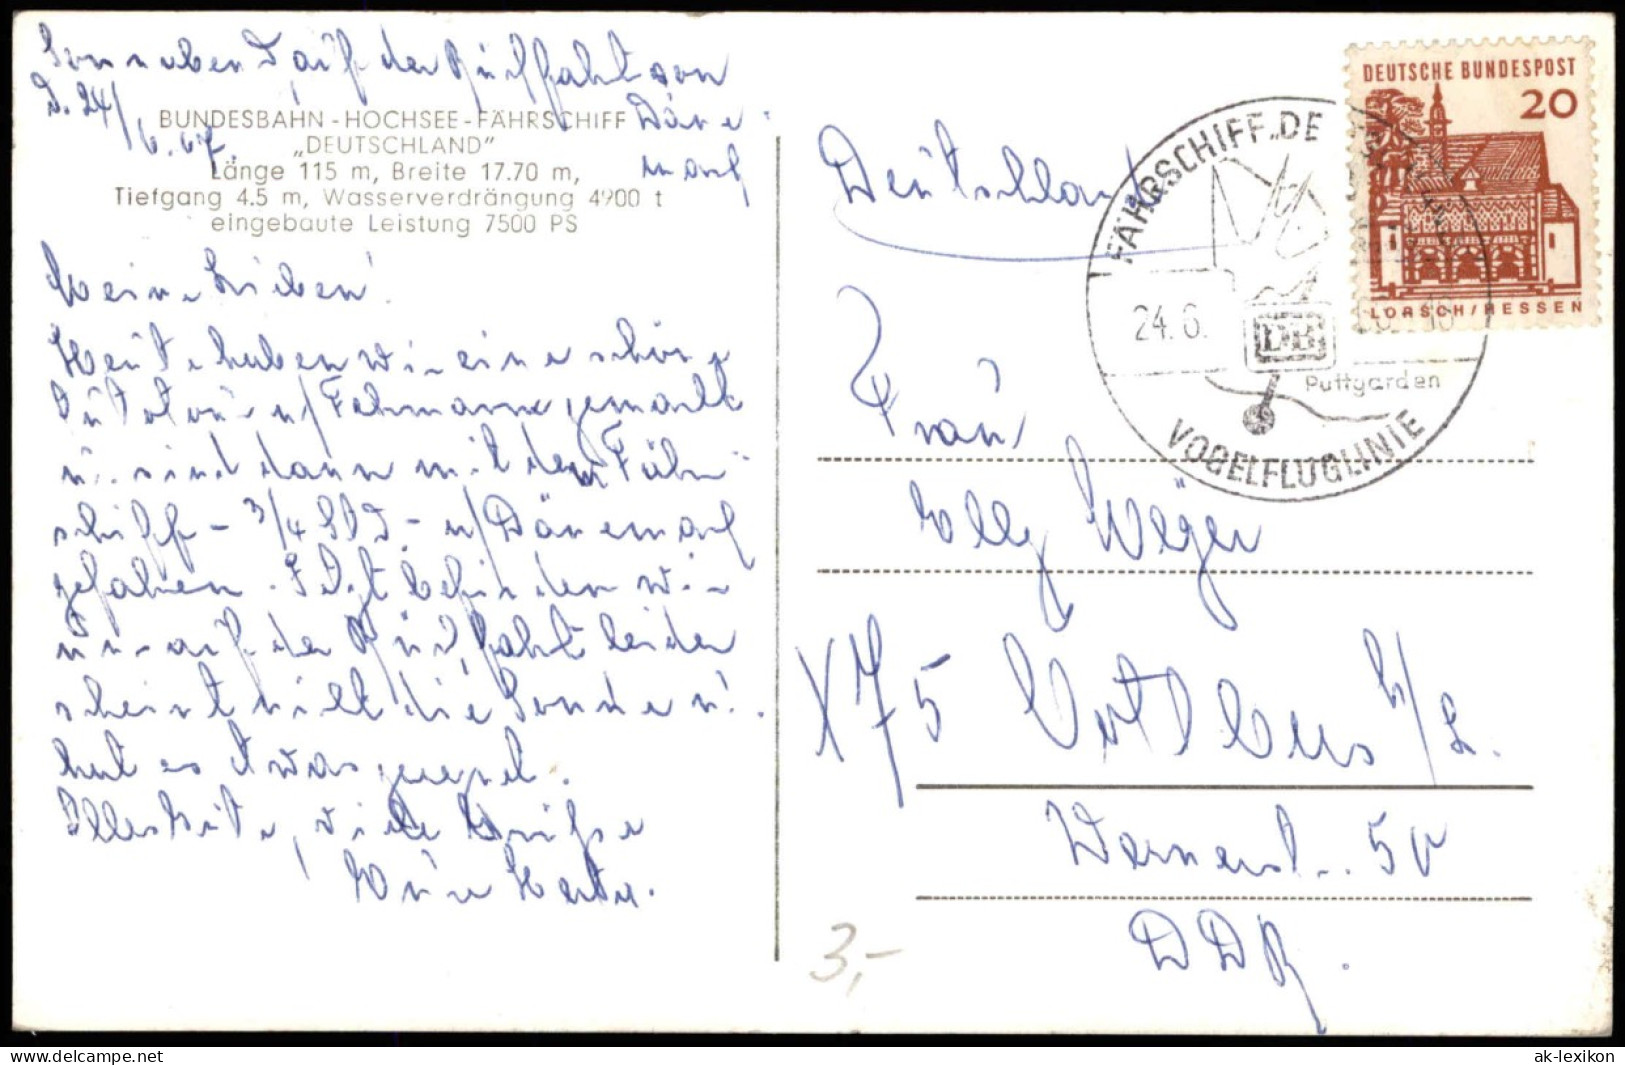 Sonnabend auf der Rückfahrt von
D. 24/6.67. Däne-
mark
BUNDESBAHN-HOCHSEE-FÄHRSCHIFF
„DEUTSCHLAND"
Länge 115 m, Breite 17.70 m,
Tiefgang 4.5 m, Wasserverdrängung 4900 t
eingebaute Leistung 7500 PS
Meine Lieben!
Heute haben wir eine schöne
n/ Fehmarn gemacht
u. sind dann mit dem Fähr-
schiff - 3/4 Std. - n/ Dänemark
gefahren. Jetzt befinden wir
uns auf der Rückfahrt leider
scheint nicht die Sonne u.
hat es etwas geregnet.
Alles Gute, viele Grüße
Eure Herta.
Deutschland
FÄHRSCHIFF „DE
24.6. 16
DB
Puttgarden
VOGELFLUGLINIE
DEUTSCHE BUNDESPOST
20
LORSCH/HESSEN
Frau
Elly Wéger
X75 Cottbus N/L.
Wernerst. 50
DDR.
3,-
ak-lexikon